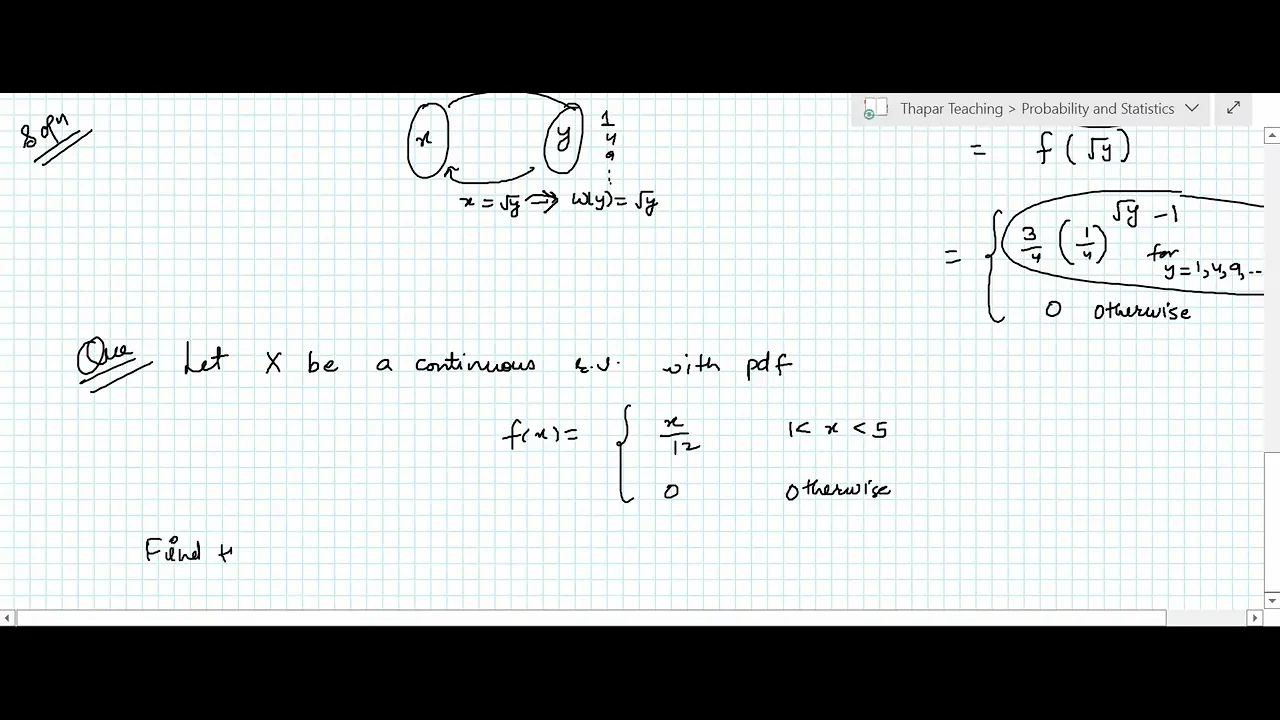 Thapar Teaching > Probability and Statistics
Soln
x y 1
4
9
⋮
x = √y ⇒ w(y) = √y
= f(√y)
= { 3/4 (1/4)^(√y - 1) for y = 1, 4, 9, ...
0 otherwise
Que Let X be a continuous r.v. with pdf
f(x) = { x/12 1 < x < 5
0 otherwise
Find t